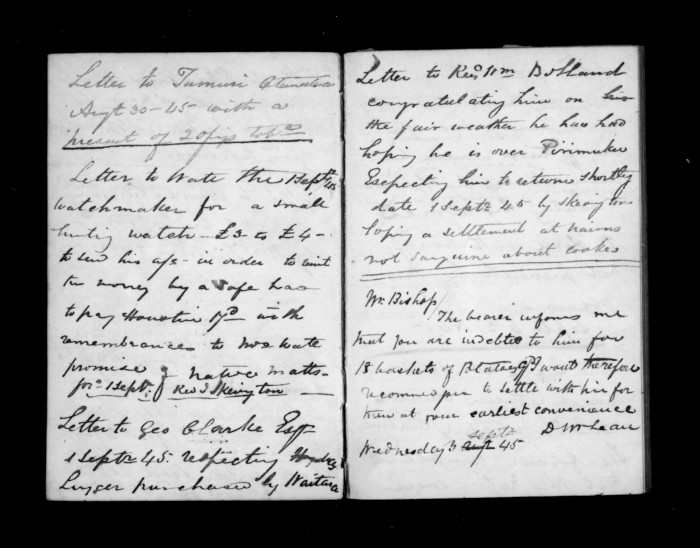 Letter to Tamuri
Augt 30-45 with a
present of 20 figs tobco
Letter to Wate the 1 Septr 45
watchmaker for a small
hunting watch - £3 to £4 -
to send his a/c - in order to remit
the money by a safe
to pay Houston with
remembrances to Mrs Wate
promise of native matts -
for 1 Sept. Revd Skevington
Letter to Geo Clarke Esqr
1 Septr 45. respecting
Lugger purchased by Waitara
Letter to Revd Wm Bolland
congratulating him on his
the fair weather he has had
hoping he is over
Expecting him to return shortly
date 1 Septr 45 by Skevington
hoping a settlement at
not sanguine about cookes
Mr. Bishop
The bearer informs me
that you are indebted to him for
18 baskets of I would therefore
to settle with him for
them at your earliest convenience
D McLean
Wednesday 3 Septr 45